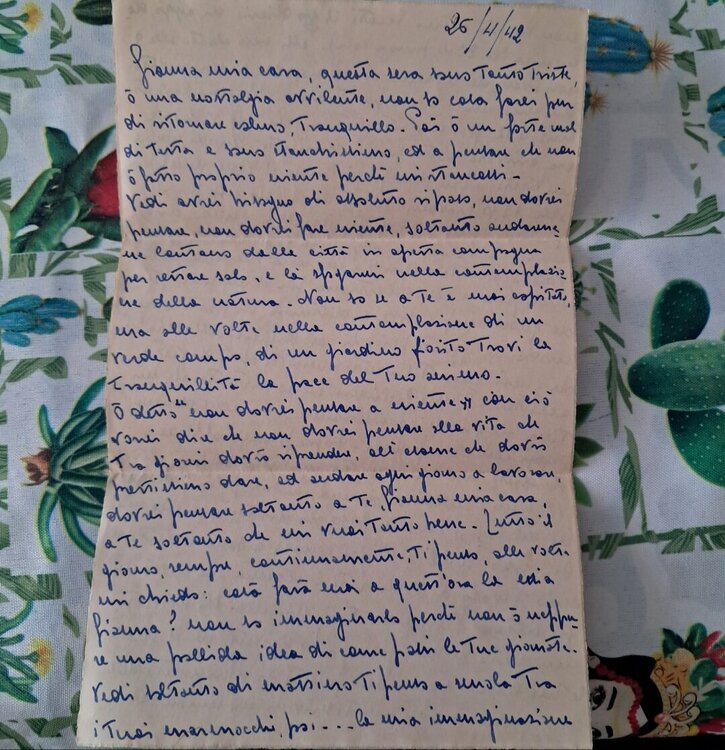 26/4/42
Gianna mia cara, questa sera sono tanto triste,
ò una nostalgia avvilente, non so cosa farei pur
di ritornare calmo, tranquillo. Poi ò un forte mal
di testa e sono stanchissimo, ed a pensare che non
ò fatto proprio niente perché mi stancassi -
Vedi avrei bisogno di assoluto riposo, non dovrei
pensare, non dovrei fare niente, soltanto andarme-
ne lontano dalla città in aperta campagna
per restare solo, e là spaziarmi nella contemplazio-
ne della natura. Non so se a te è mai capitato,
ma alle volte nella contemplazione di un
verde campo, di un giardino fiorito trovi la
tranquillità la pace del tuo animo.
Ò detto "non dovrei pensare a niente" con ciò
vorrei dire che non dovrei pensare alla vita che
tra giorni dovrò riprendere, all'esame che dovrò
prestissimo dare, ed andare ogni giorno a lavorare,
dovrei pensare soltanto a te, Gianna mia cara,
a te soltanto che mi vuoi tanto bene. Tutto il
giorno, sempre, continuamente, ti penso, alle volte
mi chiedo: cosa farà mai a quest'ora la mia
Gianna? non so immaginarlo perché non ò neppu-
re una pallida idea di come passi le tue giornate.
Vedi soltanto di mattina ti penso a scuola tra
i tuoi marmocchi, poi .... la mia immaginazione